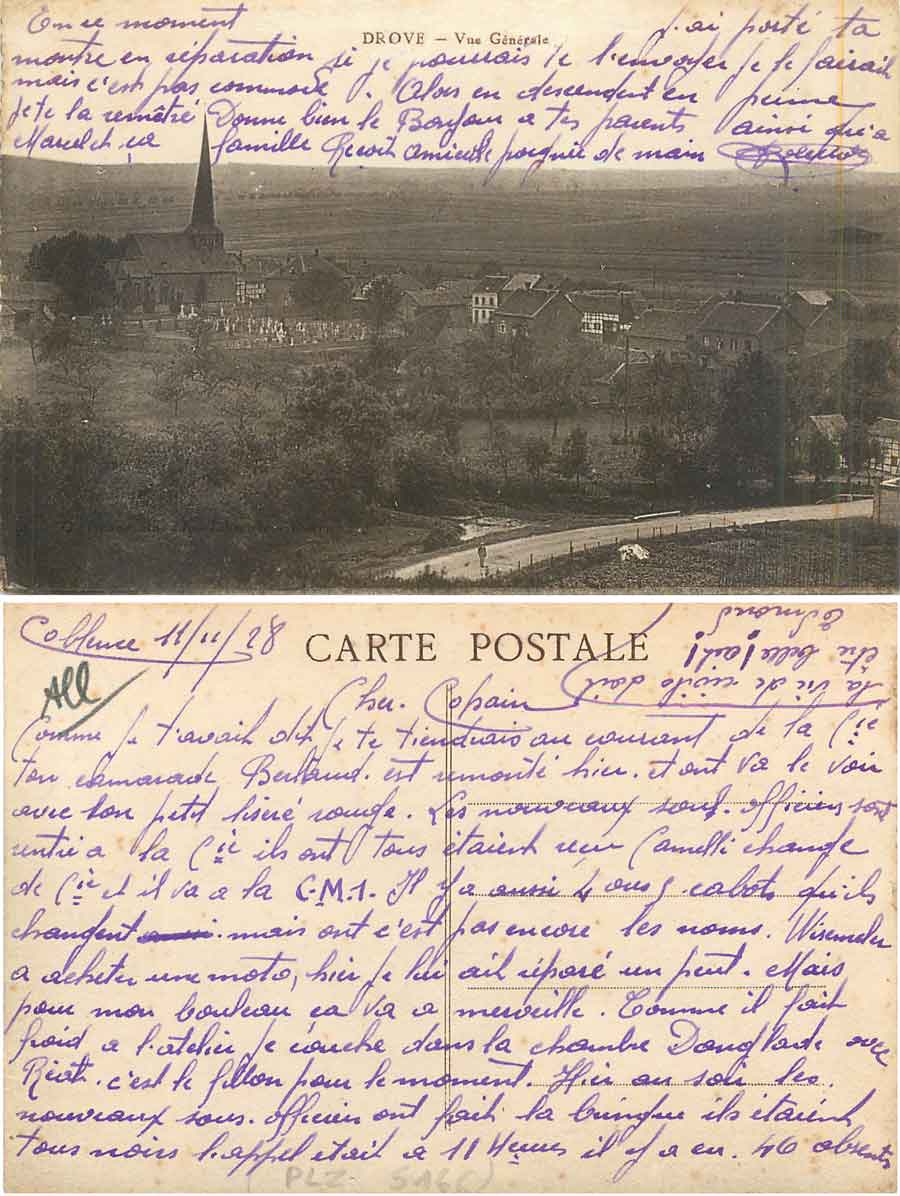 DROVE – Vue Générale
En ce moment j'ai porté ta
montre en réparation si je pourrais te l'envoyer je le fairait
mais c'est pas commode. Alors en descendent en
je te la remêtré Donne bien le Bonjour a tes parents ainsi qu'a
Marcel et ça famille Reçoit amicale poignée de main
Coblence 11/11/28
CARTE POSTALE
la vie de civile doit
être belle j'ait!
Edmond
All
Cher. Copain
Comme je t'avait dit je te tiendrais au courant de la Cie
ton camarade Bertaud. est remonté hier. et ont va le voir
avec son petit liséré rouge. Les nouveaux sous. officiers sont
rentré a la Cie ils ont tous étaient reçu Camelli change
de Cie et il va a la C.M.1. Il y a aussi 4 ou 5 cabots qu'ils
changent mais ont c'est pas encore les noms.
a acheter une moto, hier je lui ait réparé un peut. Mais
pour mon bouleau ça va a merveille. Comme il fait
froid a l'atelier je couche dans la chambre Danglade avec
c'est le fillon pour le moment. Hier au soir les
nouveaux sous. officiers ont fait la bringue ils étaient
tous noirs l'appel était a 11 Heures il y a en. 46 absents
PLZ 516